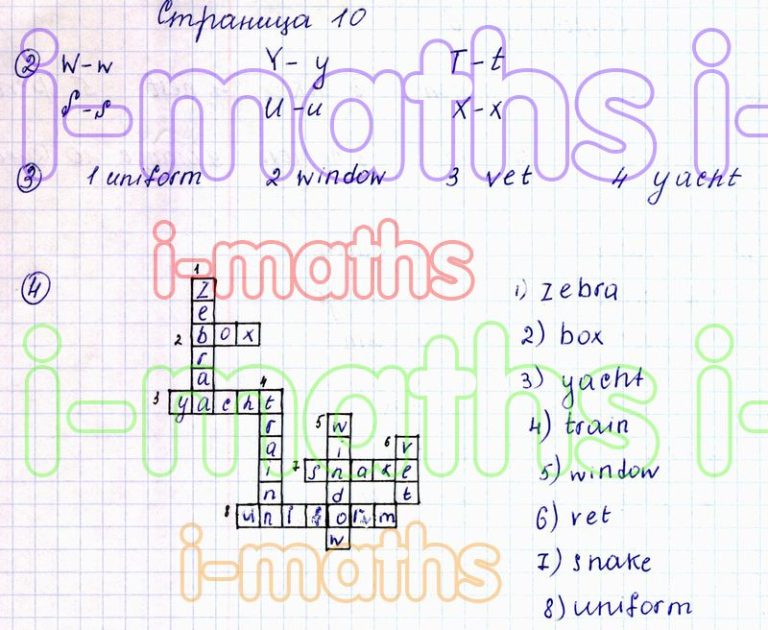 Страница 10
② W-w Y-y T-t
i-maths i-
S-s U-u X-x
③ 1 uniform 2 window 3 vet 4 yacht
i-maths
④ 1
z
e
2 b o x
r
a 4
3 y a c h t
r 5 w
a i 6 v
i 7 s n a k e
n d t
8 u n i f o r m
w
1) zebra
2) box
3) yacht
4) train
5) window
6) vet
7) snake
8) uniform
i-maths i-
i-maths